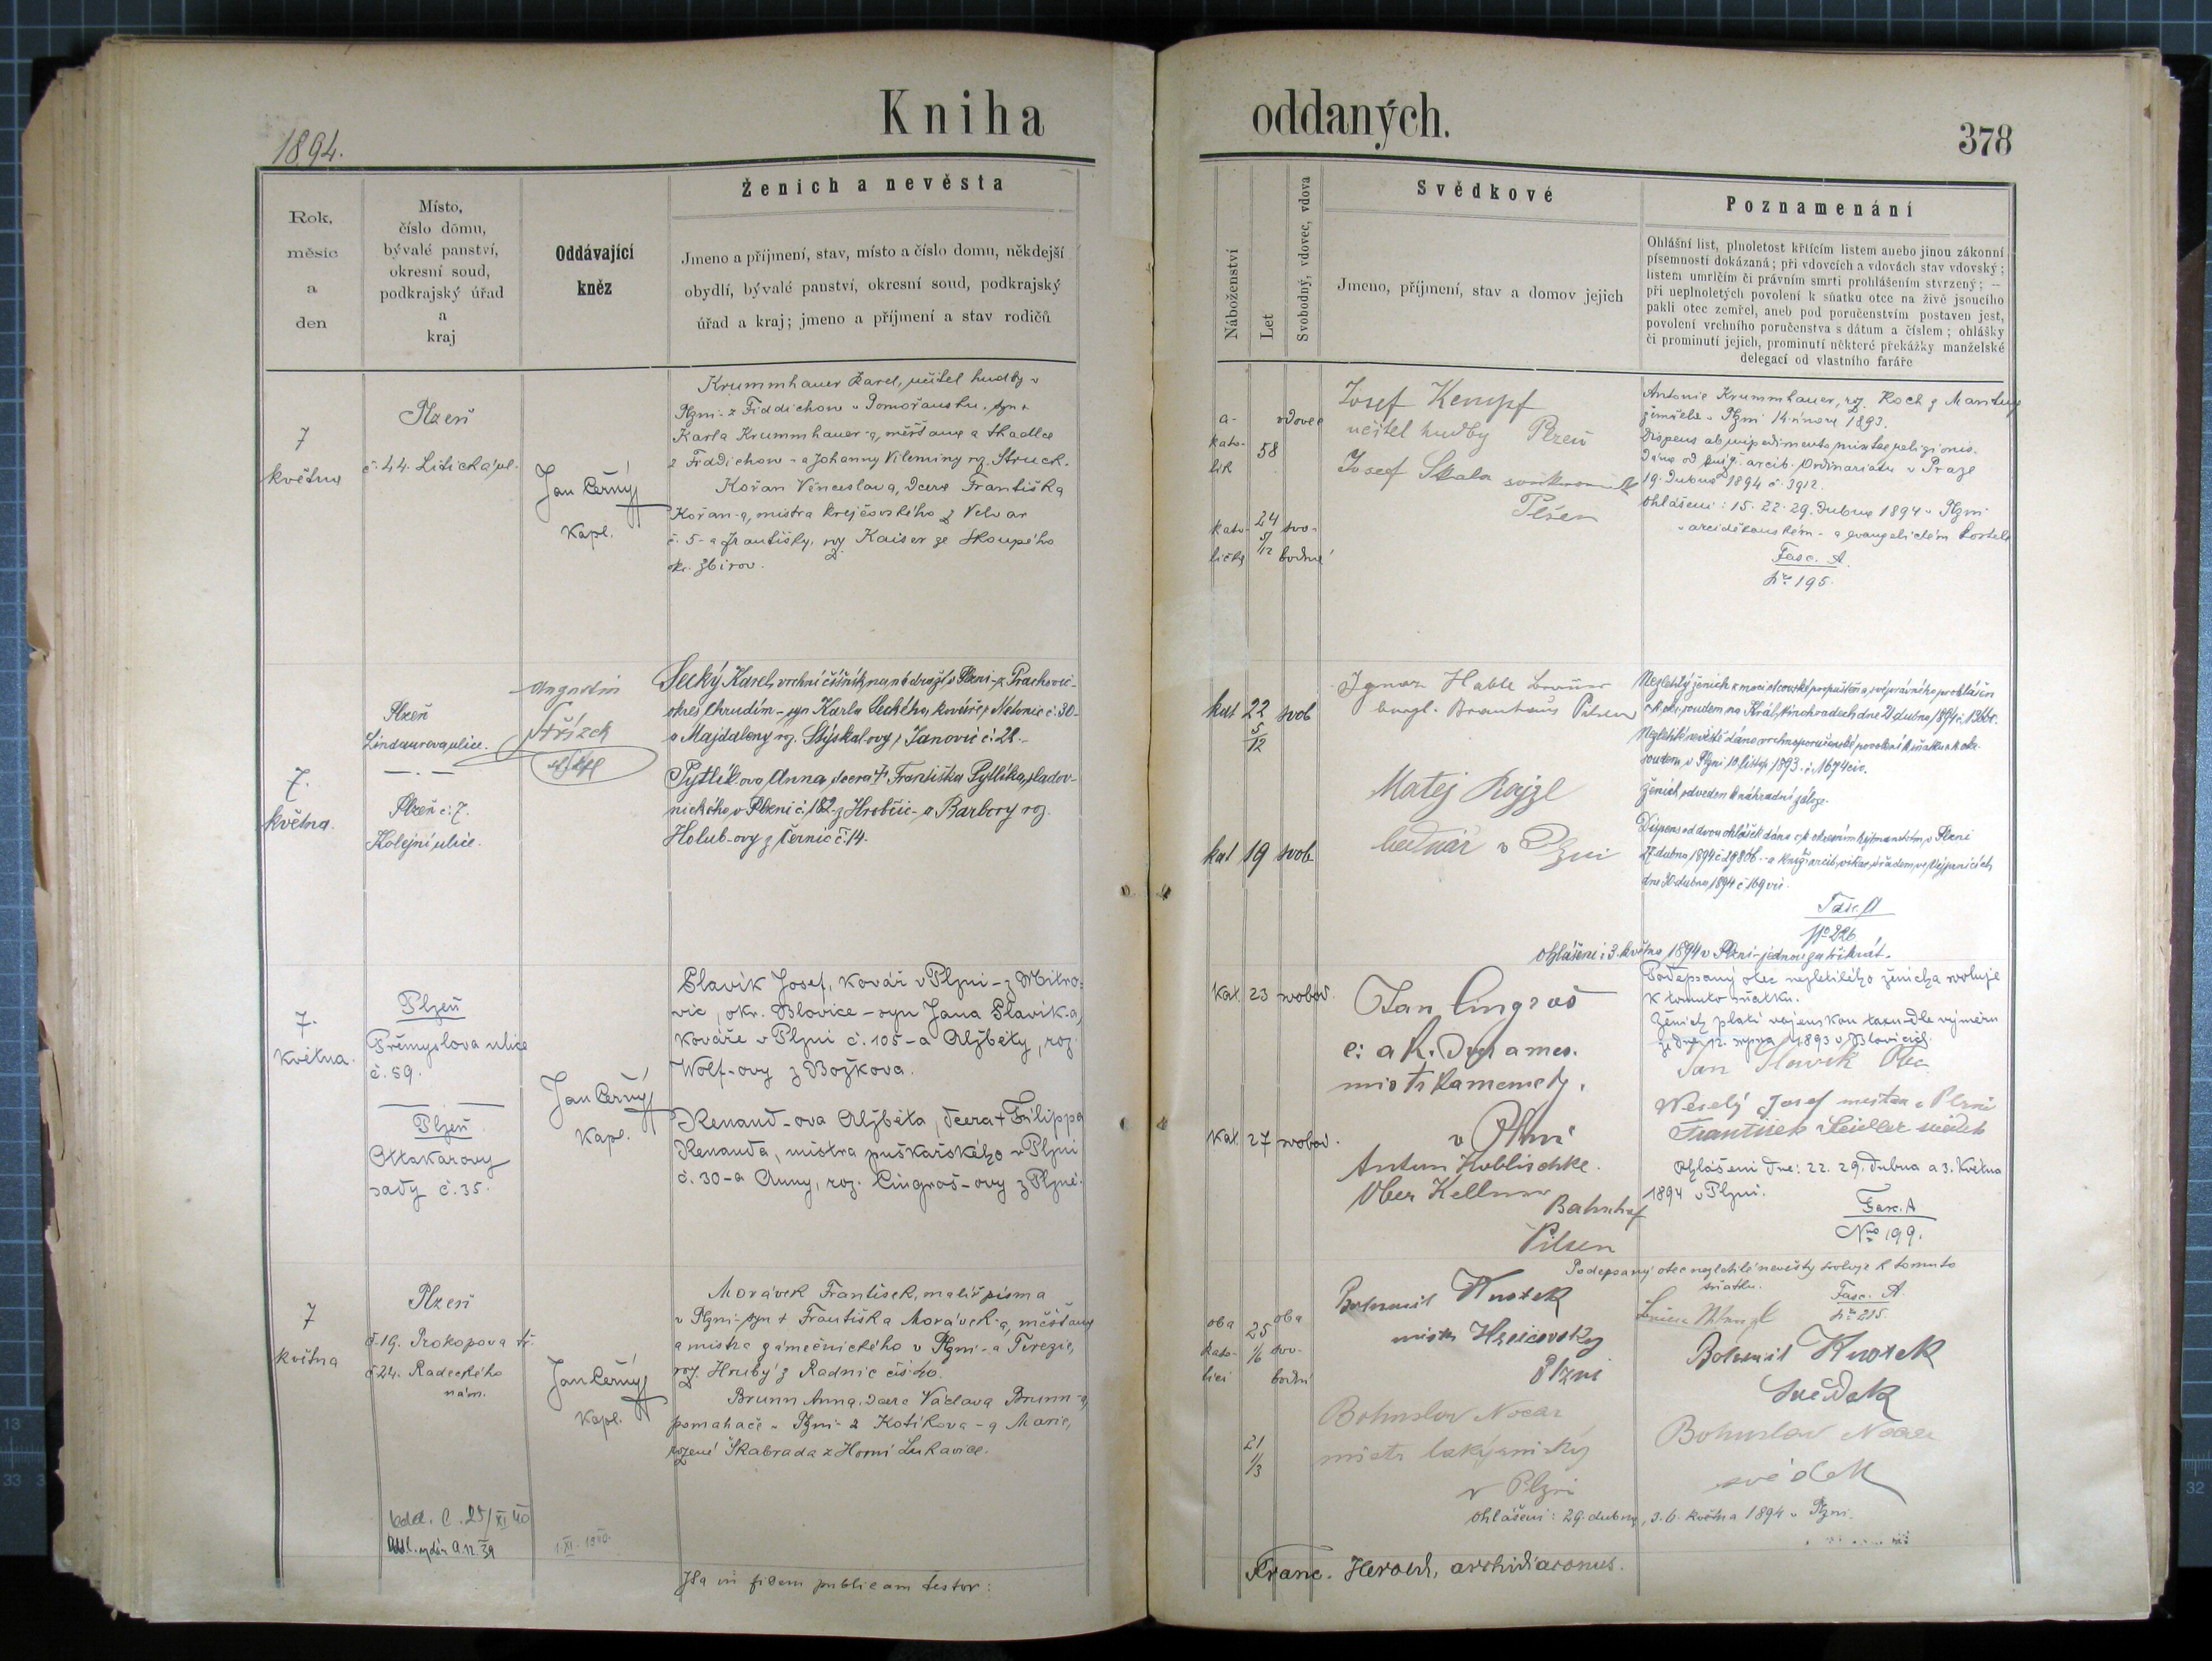 Kniha oddaných.
1894.
378
Rok,
měsíc
a
den
Místo,
číslo domu,
bývalé panství,
okresní soud,
podkrajský úřad
a
kraj
Oddávající
kněz
Ženich a nevěsta
Jmeno a příjmení, stav, místo a číslo domu, někdejší
obydlí, bývalé panství, okresní soud, podkrajský
úřad a kraj; jmeno a příjmení a stav rodičů
Náboženství
Let
Svobodný, vdovec, vdova
Svědkové
Jmeno, příjmení, stav a domov jejich
Poznamenání
Ohlášní list, plnoletost křticím listem anebo jinou zákonní
písemností dokázaná; při vdovcích a vdovách stav vdovský;
listem umrlčím či právním smrti prohlášením stvrzený; —
při neplnoletých povolení k sňatku otce na živě jsoucího
pakli otec zemřel, aneb pod poručenstvím postaven jest,
povolení vrchního poručenstva s dátum a číslem; ohlášky
či prominutí jejich, prominutí některé překážky manželské
delegací od vlastního faráře
7
května
Plzeň
č. 44. Litická ul.
Jan Černý
kapl.
Krummhauer Karel, učitel hudby v
Plzni - z Fiddichow v Pomořansku, syn +
Karla Krummhauer-a, měšťana a tkadlce
z Fiddichow - a Johanny Vileminy roz. Struck.
Kořan Věnceslava, dcera Františka
Kořan-a, mistra krejčovského z Velvar
č. 5 - a Františky, roz. Kaiser ze Skoupého
okr. Zbirov.
a-
kato-
lík
58
vdovec
kato-
lička
24
5/12
svo-
bodná
Josef Kempf
učitel hudby Plzeň
Josef Skala soukromník
Plšen
Antonie Krummhauer, roz. Koch z
zemřela v Plzni 14. února 1893.
Dispens ab impedimento mixtae religionis.
Dána od kníž. arcib. Ordinariatu v Praze
19. dubna 1894 č. 3912.
Ohlášeni: 15. 22. 29. dubna 1894 v Plzni
v arciděkanském - a evangelickém kostele
Fasc. A.
Nro 195.
7.
května.
Plzeň
Lindaurova ulice.
— . —
Plzeň č. 7.
Kolejní ulice.
Augustin
Střízek
Secký Karel, vrchní číšník na nádraží v Plzni - z Prachovic -
okres Chrudim - syn Karla Seckého, kováře z Netonic č. 30 -
a Majdaleny roz. Stýskal-ovy z Janovic č. 28. -
Pytlík-ova Anna, dcera + Františka Pytlíka, sladov-
nického v Plzni č. 182 - z Hrobčic - a Barbory roz.
Holub-ovy z Černic č. 14.
kat
22
5/12
svob
kat
19
svob
Ignaz
bürgl. Brauhaus Pilsen
Matěj Rajzl
bednář v Plzni
Nezletilý ženich z moci otcovské propuštěn a svéprávného prohlášen
c.k. okr. soudem na Král. Vinohradech dne 21. dubna 1894 č.
Nezletilé nevěstě dáno vrchnoporučenské povolení k sňatku c.k. okr.
soudem v Plzni 10. listop. 1893. č. 11674 civ.
Ženich odveden k náhradní záloze.
Dispens od dvou ohlášek dána c.k. okresním hejtmanstvím v Plzni
27. dubna 1894 č. - a kníž. arcib. vikar. úřadem ve Vejprnicích
dne 30. dubna 1894 č. 169 vic.
Fasc. A
No 226
Ohlášeni: 3. května 1894 v Plzni - jednou za třikrát.
7.
května.
Plzeň
Přemyslova ulice
č. 59.
Plzeň
Ottakarovy
sady č. 35.
Jan Černý
Kapl.
Slavík Josef, kovář v Plzni - z Mitro-
vic, okr. Blovice - syn Jana Slavík-a,
kováře v Plzni č. 105 - a Alžběty, roz.
Wolf-ovy z Božkova.
Renaud-ova Alžběta, dcera + Filippa
Renauda, mistra puškařského v Plzni
č. 30 - a Anny, roz. Cingroš-ovy z Plzně.
Kat.
23
svobod.
Kat.
27
svobod.
Jan Cingroš
c. a k.
mistr kamenický.
v Plzni
Anton Koblischke.
Ober Kellner
Bahnhof
Pilsen
Podepsaný otec nezletilého ženicha svoluje
k tomuto sňatku.
Ženich platí vojenskou taxu dle výměru
ze dne 12. srpna 1893 v Blovicích.
Jan Slavík Otec
Weselý Josef v Plzni
František Seidler svědek
Ohlášeni dne: 22. 29. dubna a 3. května
1894 v Plzni.
Fasc. A
Nro 199.
7
května
Plzeň
č. 19. Prokopova tř.
č. 24. Radeckého
nám.
Jan Černý
Kapl.
Morávek František, malíř písma
v Plzni - syn + Františka Morávek-a, měšťana
a mistra zámečnického v Plzni - a Terezie,
roz. Hrubý z Radnic čís. 40.
Brunn Anna, dcera Václava Brunn-a,
pomahače v Plzni - z Kotíkova - a Marie,
rozené Škabrada z Horní Lukavice.
oba
kato-
líci
25
1/6
oba
svo-
bodní
21
1/3
Bohumil Knotek
mistr
Plzni
Bohuslav Nocar
mistr lakýrnický
v Plzni
Podepsaný otec nezletilé nevěsty svoluje k tomuto
sňatku.
Fasc. A.
Nro 215.
Bohumil Knotek
svědek
Bohuslav Nocar
svědek
Ohlášeni: 29. dubna, 3. 6. května 1894 v Plzni.
1. XI. 1940.
Ita in fidem publicam testor:
Franc. Herold, archidiaconus.